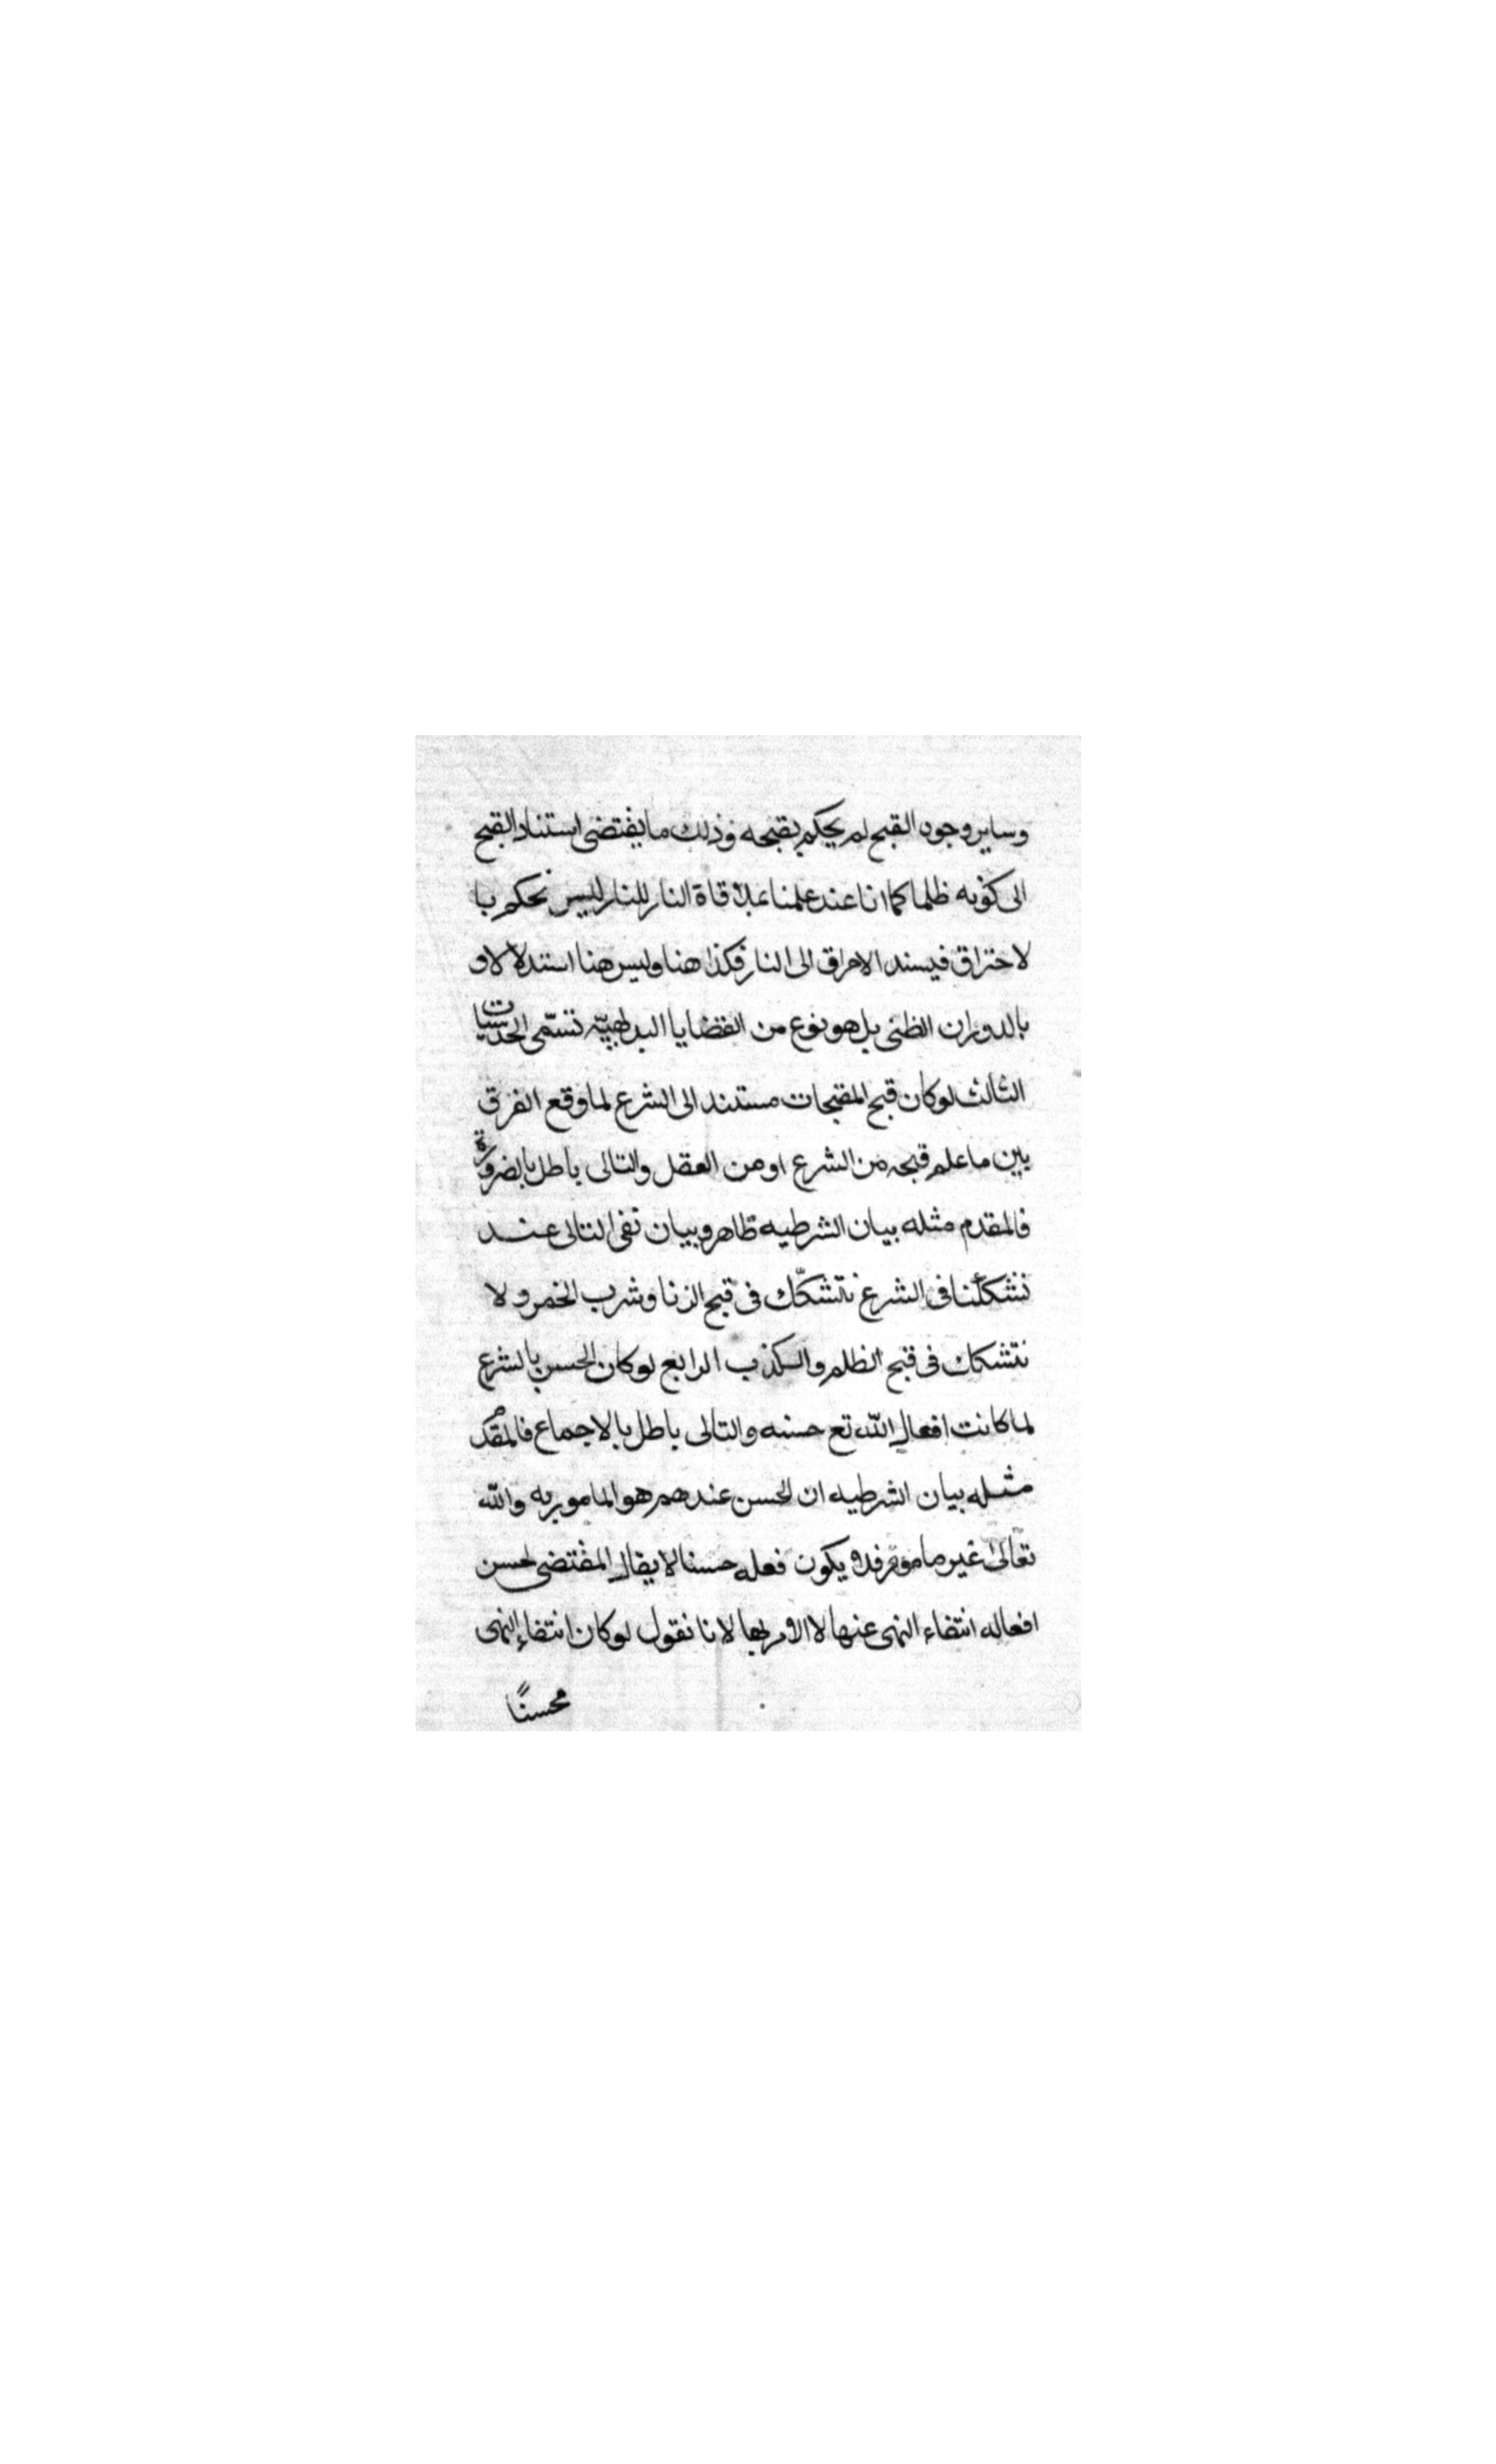 وساير وجوه القبح لم يحكم بقبحه وذلك ما يقتضى استناد القبح
الى كونه ظلما كما انا عند علمنا بملاقاة النار للنار ليس نحكم با
لاحتراق فيسند الاحراق الى النار فكذا هنا وليس هنا استدلالا و
بالدوران الظنى بل هو نوع من القضايا البديهيّة تسمّى الحدسيات
الثالث لو كان قبح المقبحات مستند الى الشرع لما وقع الفرق
بين ما علم قبحه من الشرع او من العقل والتالى باطل بالضرورة
فالمقدم مثله بيان الشرطيه ظاهر وبيان نفى التالى عند
تشككنا فى الشرع نتشكّك فى قبح الزنا وشرب الخمر ولا
نتشكك فى قبح الظلم والكذب الرابع لو كان الحسن بالشرع
لما كانت افعال اللّه تع حسنه والتالى باطل بالاجماع فالمقدم
مثله بيان الشرطيه ان الحسن عندهم هو المامور به واللّه
تعالى غير مامور فلا يكون فعله حسنا لا يقال المقتضى لحسن
افعاله انتفاء النهى عنها لا الامر بها لانا نقول لو كان انتفاء النهى
محسنًا